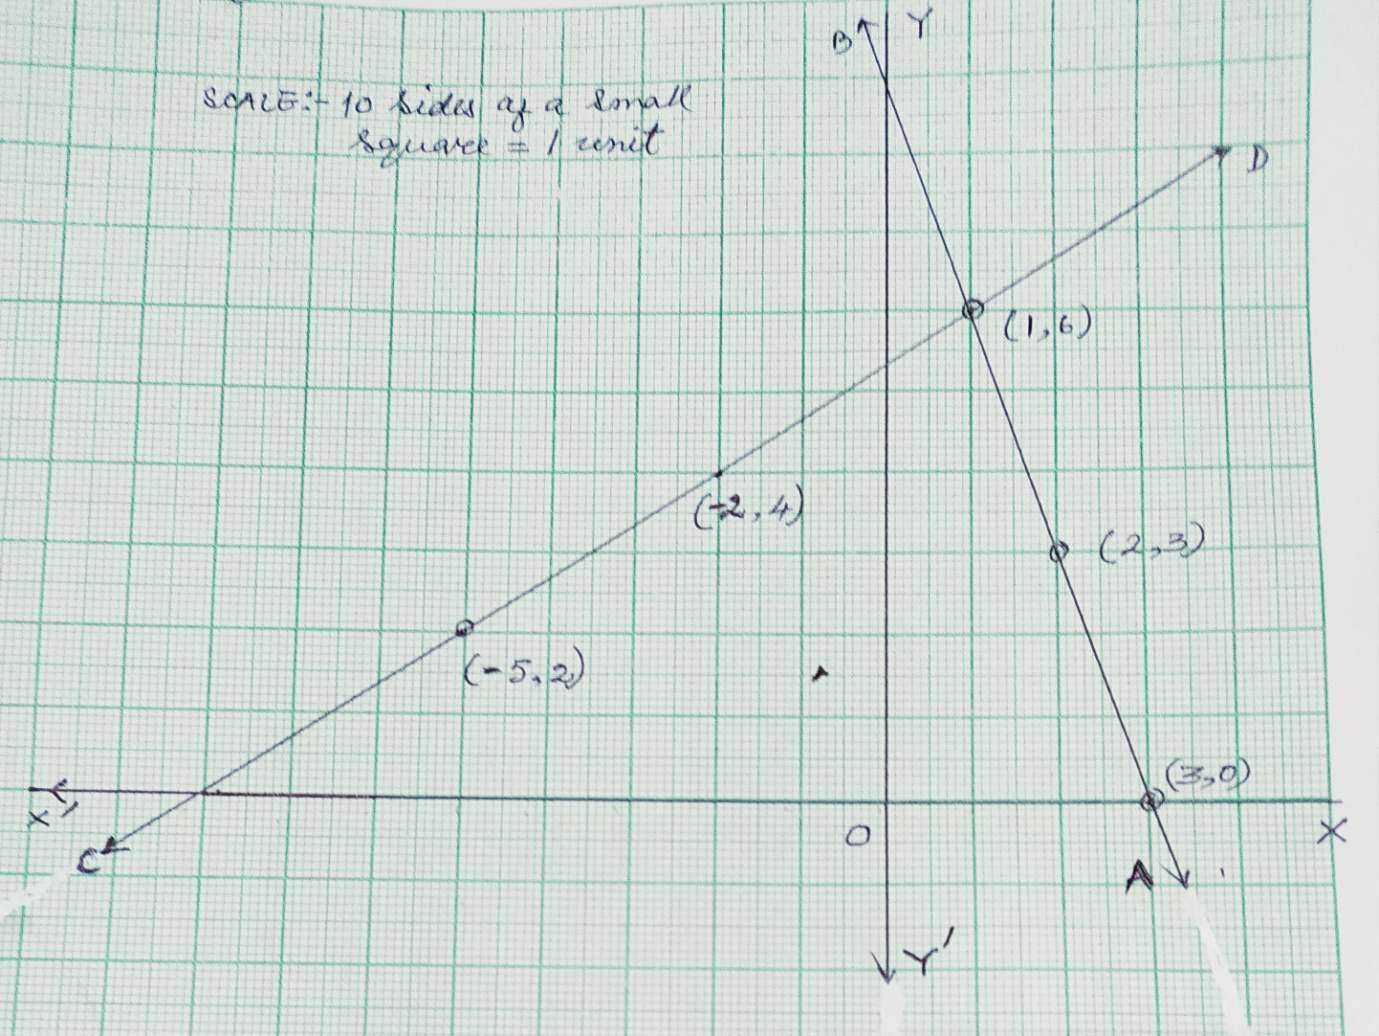 B Y
SCALE:- 10 sides of a small
square = 1 unit
D
(1,6)
(-2,4)
(2,3)
(-5,2)
(3,0)
X'
O
X
C
A
Y'